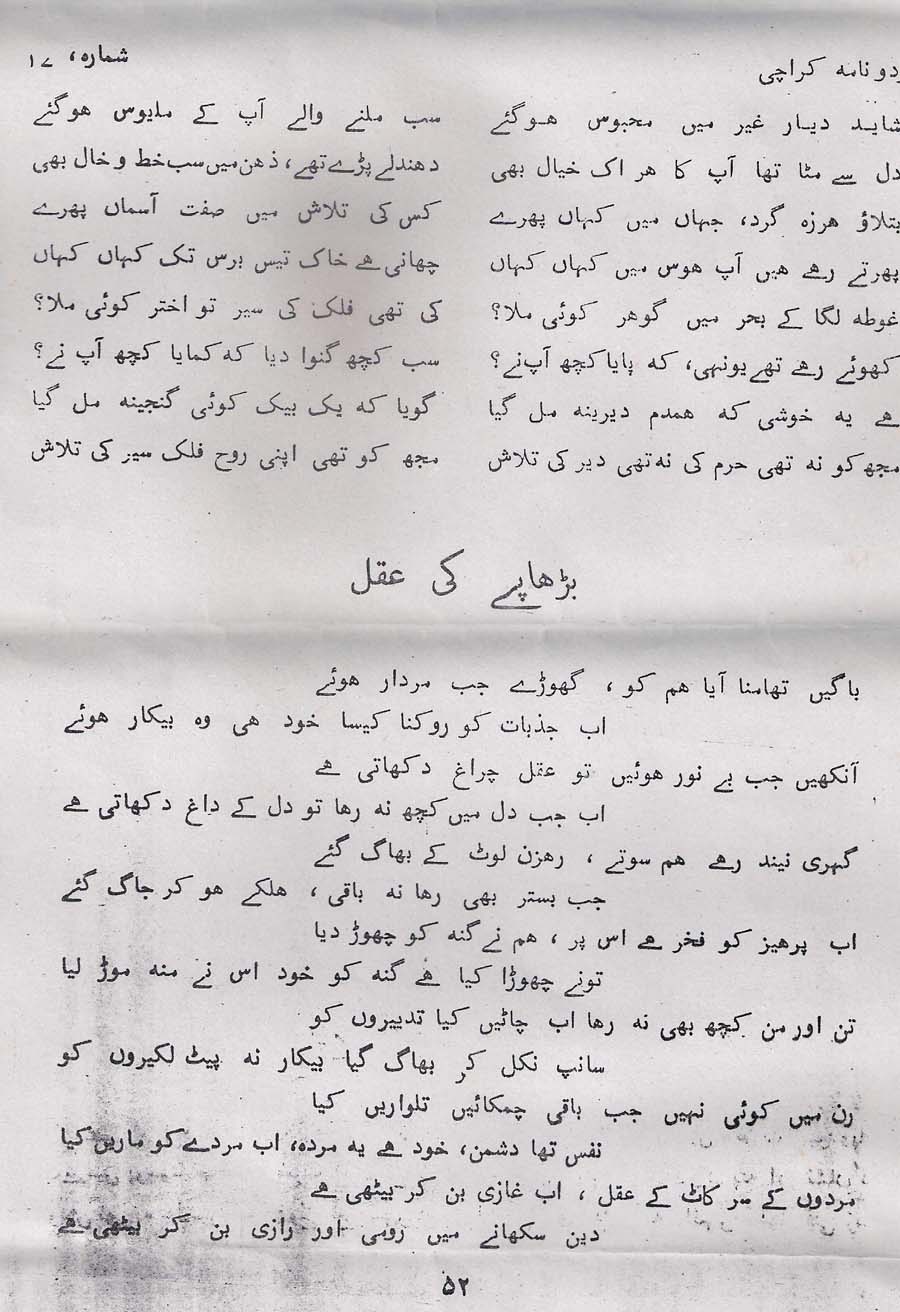 ردو نامه کراچی
شماره، ۱۷
شاید دیار غیر میں محبوس ہوگئے
سب ملنے والے آپ کے مایوس ہوگئے
دل سے مٹا تھا آپ کا ہر اک خیال بھی
دھندلے پڑے تھے، ذہن میں سب خط و خال بھی
بتلاؤ ہرزہ گرد، جہاں میں کہاں پھرے
کس کی تلاش میں صفت آسماں پھرے
پھرتے رہے ہیں آپ ہوس میں کہاں کہاں
چھانی ہے خاک تیس برس تک کہاں کہاں
غوطہ لگا کے بحر میں گوہر کوئی ملا؟
کی تھی فلک کی سیر تو اختر کوئی ملا؟
کھوئے رہے تھے یونہی، کہ پایا کچھ آپ نے؟
سب کچھ گنوا دیا کہ کمایا کچھ آپ نے؟
ہے یہ خوشی کہ ہمدم دیرینہ مل گیا
گویا کہ یک بیک کوئی گنجینہ مل گیا
مجھ کو نہ تھی حرم کی نہ تھی دیر کی تلاش
مجھ کو تھی اپنی روح فلک سیر کی تلاش
بڑھاپے کی عقل
باگیں تھامنا آیا ہم کو ، گھوڑے جب مردار ہوئے
اب جذبات کو روکنا کیسا خود ہی وہ بیکار ہوئے
آنکھیں جب بے نور ہوئیں تو عقل چراغ دکھاتی ہے
اب جب دل میں کچھ نہ رہا تو دل کے داغ دکھاتی ہے
گہری نیند رہے ہم سوتے ، رہزن لوٹ کے بھاگ گئے
جب بستر بھی رہا نہ باقی ، ہلکے ہو کر جاگ گئے
اب پرہیز کو فخر ہے اس پر ، ہم نے گنہ کو چھوڑ دیا
تونے چھوڑا کیا ہے گنہ کو خود اس نے منہ موڑ لیا
تن اور من کچھ بھی نہ رہا اب چاٹیں کیا تدبیروں کو
سانپ نکل کر بھاگ گیا بیکار نہ پیٹ لکیروں کو
رن میں کوئی نہیں جب باقی چمکائیں تلواریں کیا
نفس تھا دشمن، خود ہے یہ مردہ، اب مردے کو ماریں کیا
مردوں کے سر کاٹ کے عقل ، اب غازی بن کر بیٹھی ہے
دین سکھانے میں رومی اور رازی بن کر بیٹھی ہے
۵۲